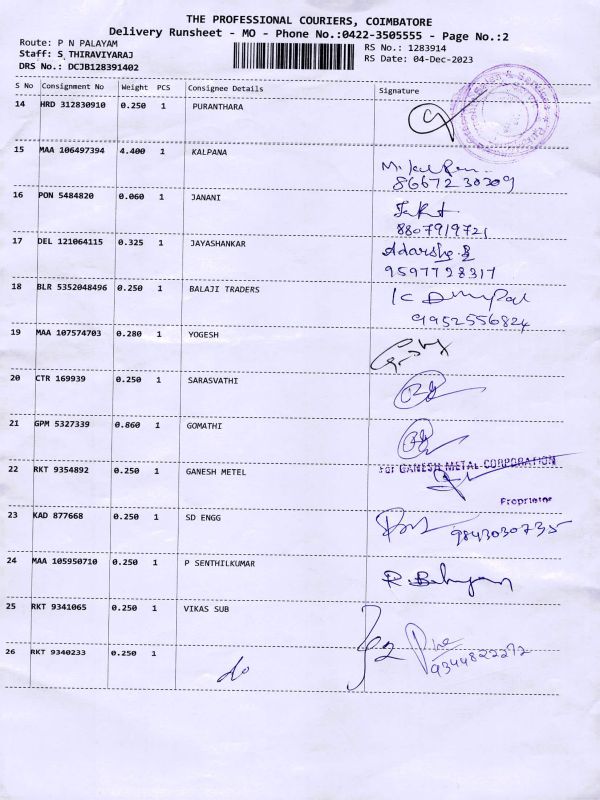 THE PROFESSIONAL COURIERS, COIMBATORE
Delivery Runsheet - MO - Phone No.:0422-3505555 - Page No.:2
Route: P N PALAYAM
RS No.: 1283914
Staff: S THIRAVIYARAJ
RS Date: 04-Dec-2023
DRS No.: DCJB128391402
S No Consignment No Weight PCS Consignee Details Signature
14 HRD 312830910 0.250 1 PURANTHARA
15 MAA 106497394 4.400 1 KALPANA
8667230309
16 PON 5484820 0.060 1 JANANI
8807919721
17 DEL 121064115 0.325 1 JAYASHANKAR
9597728317
18 BLR 5352048496 0.250 1 BALAJI TRADERS
9952556824
19 MAA 107574703 0.280 1 YOGESH
20 CTR 169939 0.250 1 SARASVATHI
21 GPM 5327339 0.860 1 GOMATHI
22 RKT 9354892 0.250 1 GANESH METEL For GANESH METAL CORPORATION
Proprietor
23 KAD 877668 0.250 1 SD ENGG 9843030735
24 MAA 105950710 0.250 1 P SENTHILKUMAR
25 RKT 9341065 0.250 1 VIKAS SUB
26 RKT 9340233 0.250 1 do 9344822272